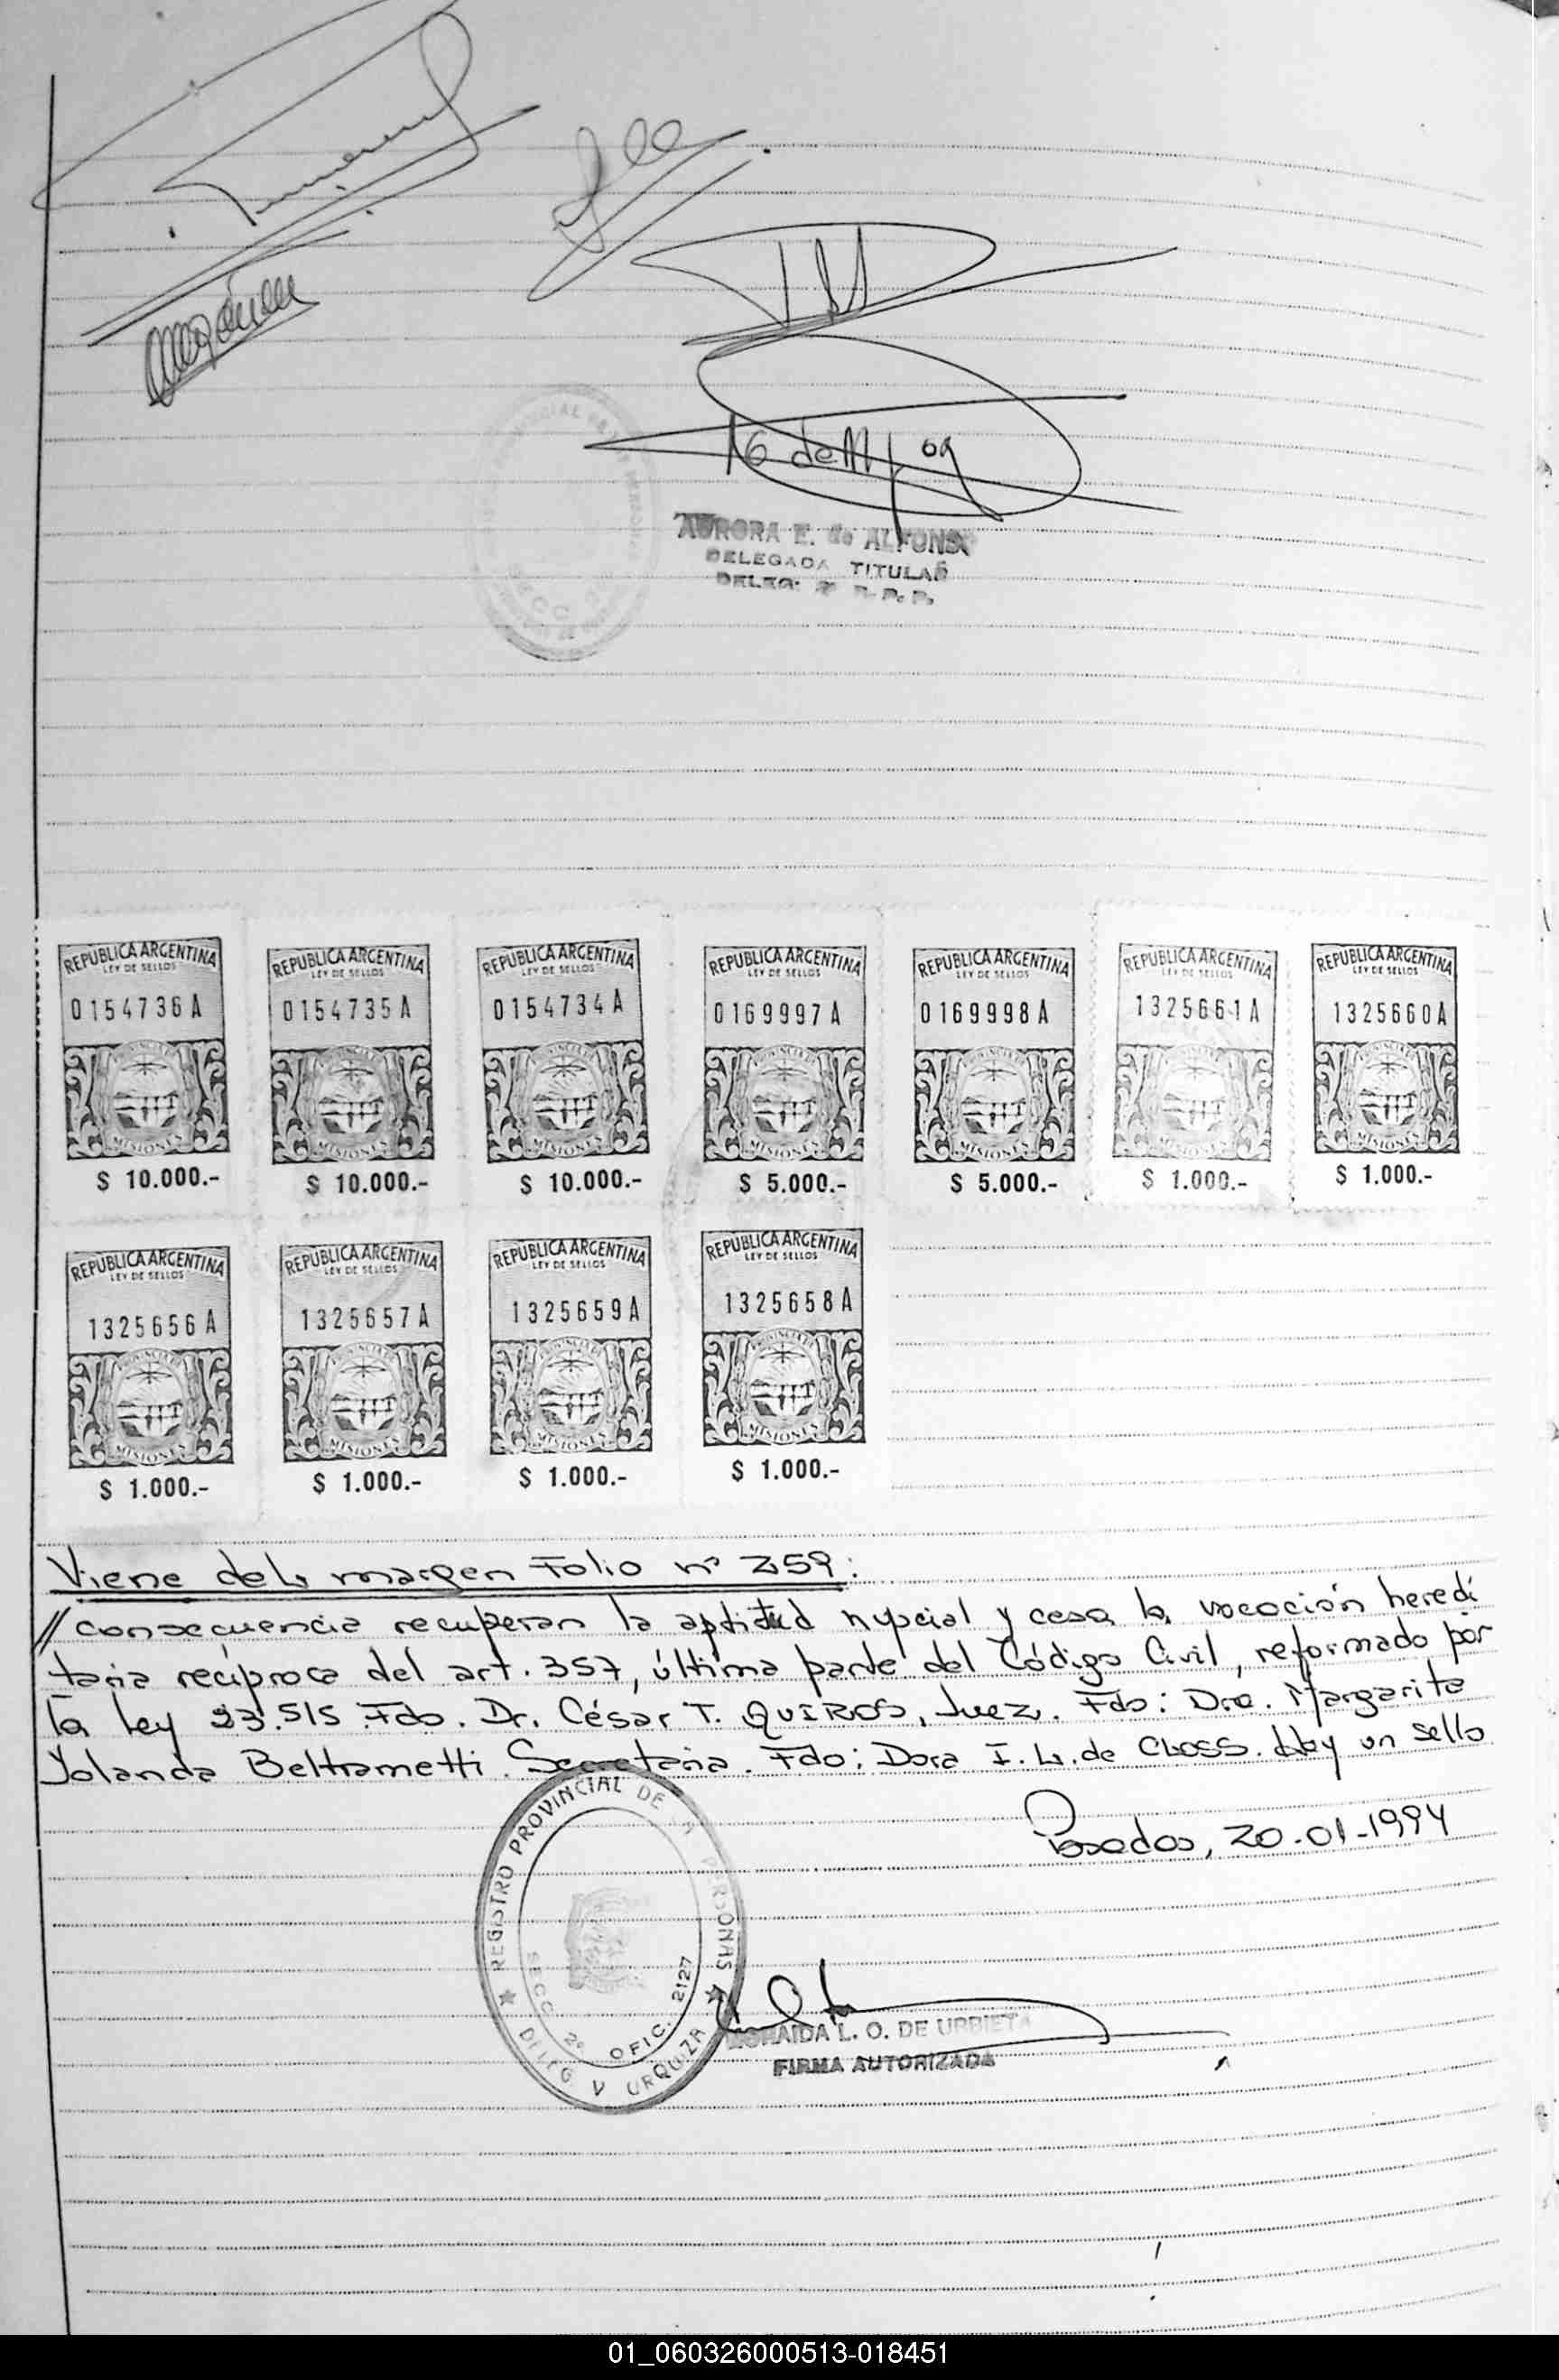 16 de
AURORA E. de ALFONSO
DELEGADA TITULAR
REPUBLICA ARGENTINA
LEY DE SELLOS
0154736A
MISIONES
$ 10.000.-
REPUBLICA ARGENTINA
LEY DE SELLOS
0154735A
MISIONES
$ 10.000.-
REPUBLICA ARGENTINA
LEY DE SELLOS
0154734A
MISIONES
$ 10.000.-
REPUBLICA ARGENTINA
LEY DE SELLOS
0169997A
MISIONES
$ 5.000.-
REPUBLICA ARGENTINA
LEY DE SELLOS
0169998A
MISIONES
$ 5.000.-
REPUBLICA ARGENTINA
LEY DE SELLOS
1325661A
MISIONES
$ 1.000.-
REPUBLICA ARGENTINA
LEY DE SELLOS
1325660A
MISIONES
$ 1.000.-
REPUBLICA ARGENTINA
LEY DE SELLOS
1325656A
MISIONES
$ 1.000.-
REPUBLICA ARGENTINA
LEY DE SELLOS
1325657A
MISIONES
$ 1.000.-
REPUBLICA ARGENTINA
LEY DE SELLOS
1325659A
MISIONES
$ 1.000.-
REPUBLICA ARGENTINA
LEY DE SELLOS
1325658A
MISIONES
$ 1.000.-
Viene del margen Folio nº 359:
//consecuencia recuperan la aptitud nupcial y cesa la vocación heredi
taria recíproca del art. 357, última parte del Código Civil, reformado por
la Ley 23.515. Fdo. Dr. César T. QUIROS, Juez. Fdo: Dra. Margarita
Yolanda Beltrametti. Secretaria. Fdo: Dora I. L. de CLOSS. Hay un sello
Posadas, 20-01-1994
REGISTRO PROVINCIAL DE LAS PERSONAS
SECC. 2ª OFIC. 2127
DELEG V URQUIZA
L. O. DE URBIETA
FIRMA AUTORIZADA
01_060326000513-018451